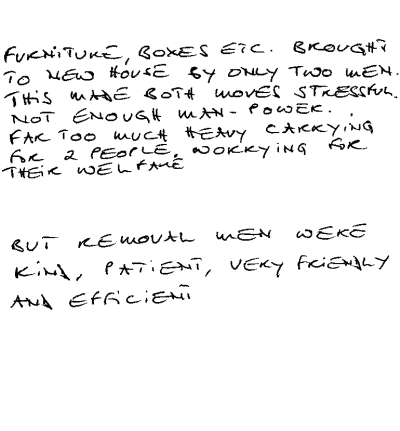 FURNITURE, BOXES ETC. BROUGHT
TO NEW HOUSE BY ONLY TWO MEN.
THIS MADE BOTH MOVES STRESSFUL.
NOT ENOUGH MAN-POWER.
FAR TOO MUCH HEAVY CARRYING
FOR 2 PEOPLE, WORRYING FOR
THEIR WELFARE
BUT REMOVAL MEN WERE
KIND, PATIENT, VERY FRIENDLY
AND EFFICIENT